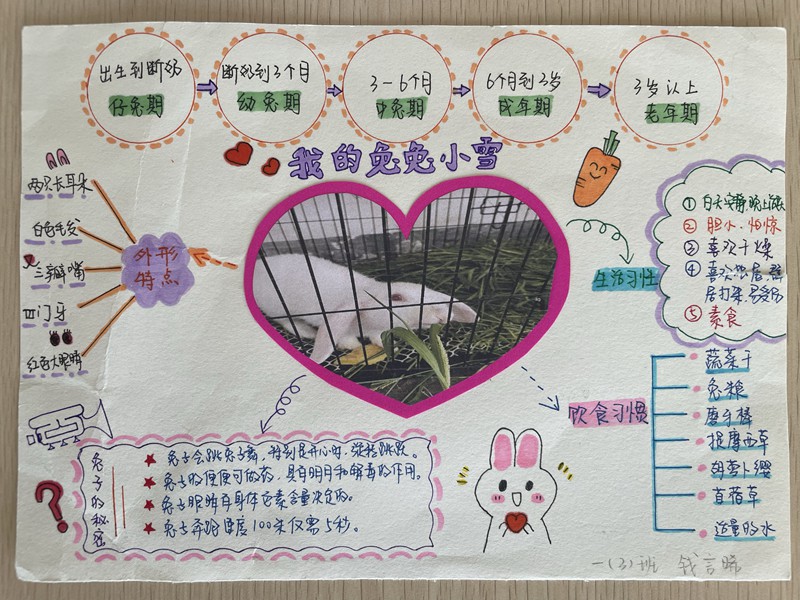 出生到断奶
仔兔期
断奶到3个月
幼兔期
3-6个月
中兔期
6个月到3岁
成年期
3岁以上
老年期
我的兔兔小雪
两只长耳朵
白色毛发
三瓣嘴
四门牙
红色大眼睛
外形
特点
①白天安静,晚上活跃
②胆小、怕惊
③喜欢干燥
④喜欢独居,群
居打架,易受伤
⑤素食
生活习性
饮食习惯
蔬菜干
兔粮
磨牙棒
提摩西草
胡萝卜缨
苜蓿草
适量的水
兔子的秘密
兔子会跳兔子舞,特别是开心时,旋转跳跃。
兔子的便便可做药,具有明目和解毒的作用。
兔子眼睛有身体色素含量决定的。
兔子奔跑速度100米仅需5秒。
一(3)班 钱言晞